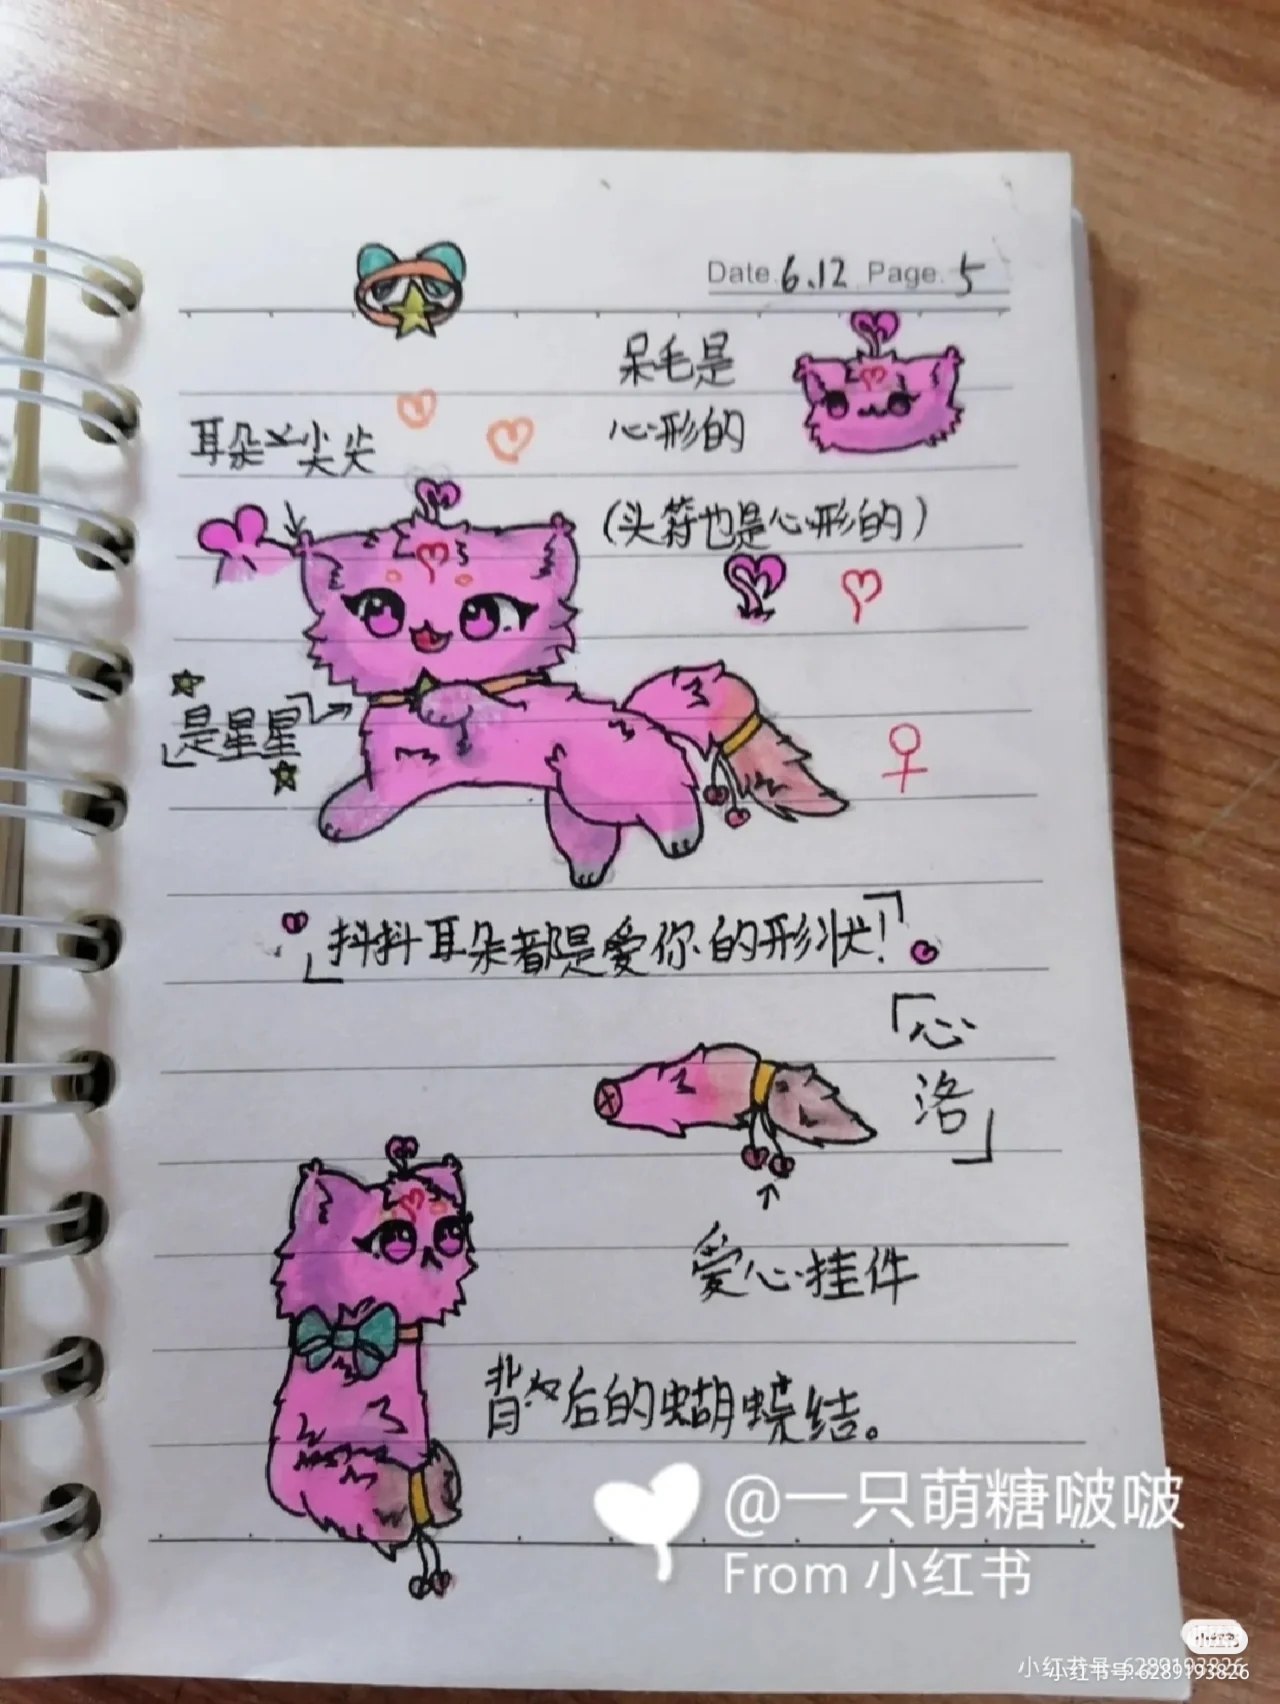 Date 6.12 Page. 5
呆毛是
心形的
耳朵丷尖尖
(头符也是心形的)
是星星
抖抖耳朵都是爱你的形状!
「心
洛」
爱心挂件
背后的蝴蝶结。
@一只萌糖啵啵
From 小红书
小红书号:6289193826